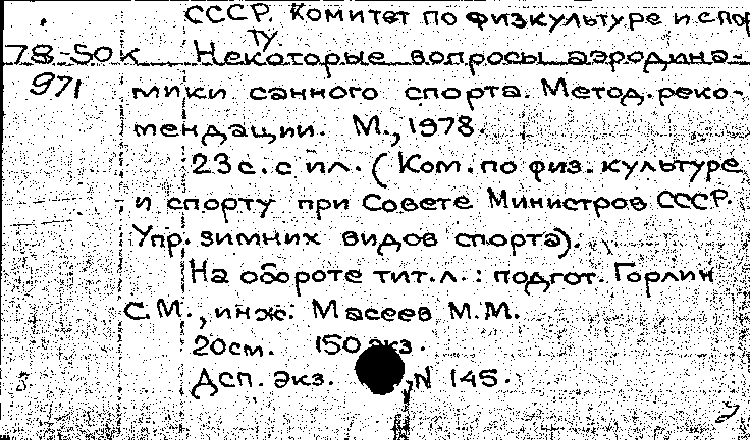 СССР. Комитет по физкультуре и спор
ту
78-50к Некоторые вопросы аэродина-
971 мики санного спорта. Метод. реко-
мендации. М., 1978.
23с. с ил. (Ком. по физ. культуре
и спорту при Совете Министров СССР.
Упр. зимних видов спорта).
На обороте тит. л.: подгот. Горлин
С.М., инж. Масеев М.М.
20см. 150 экз.
Дсп. Экз. N 145.